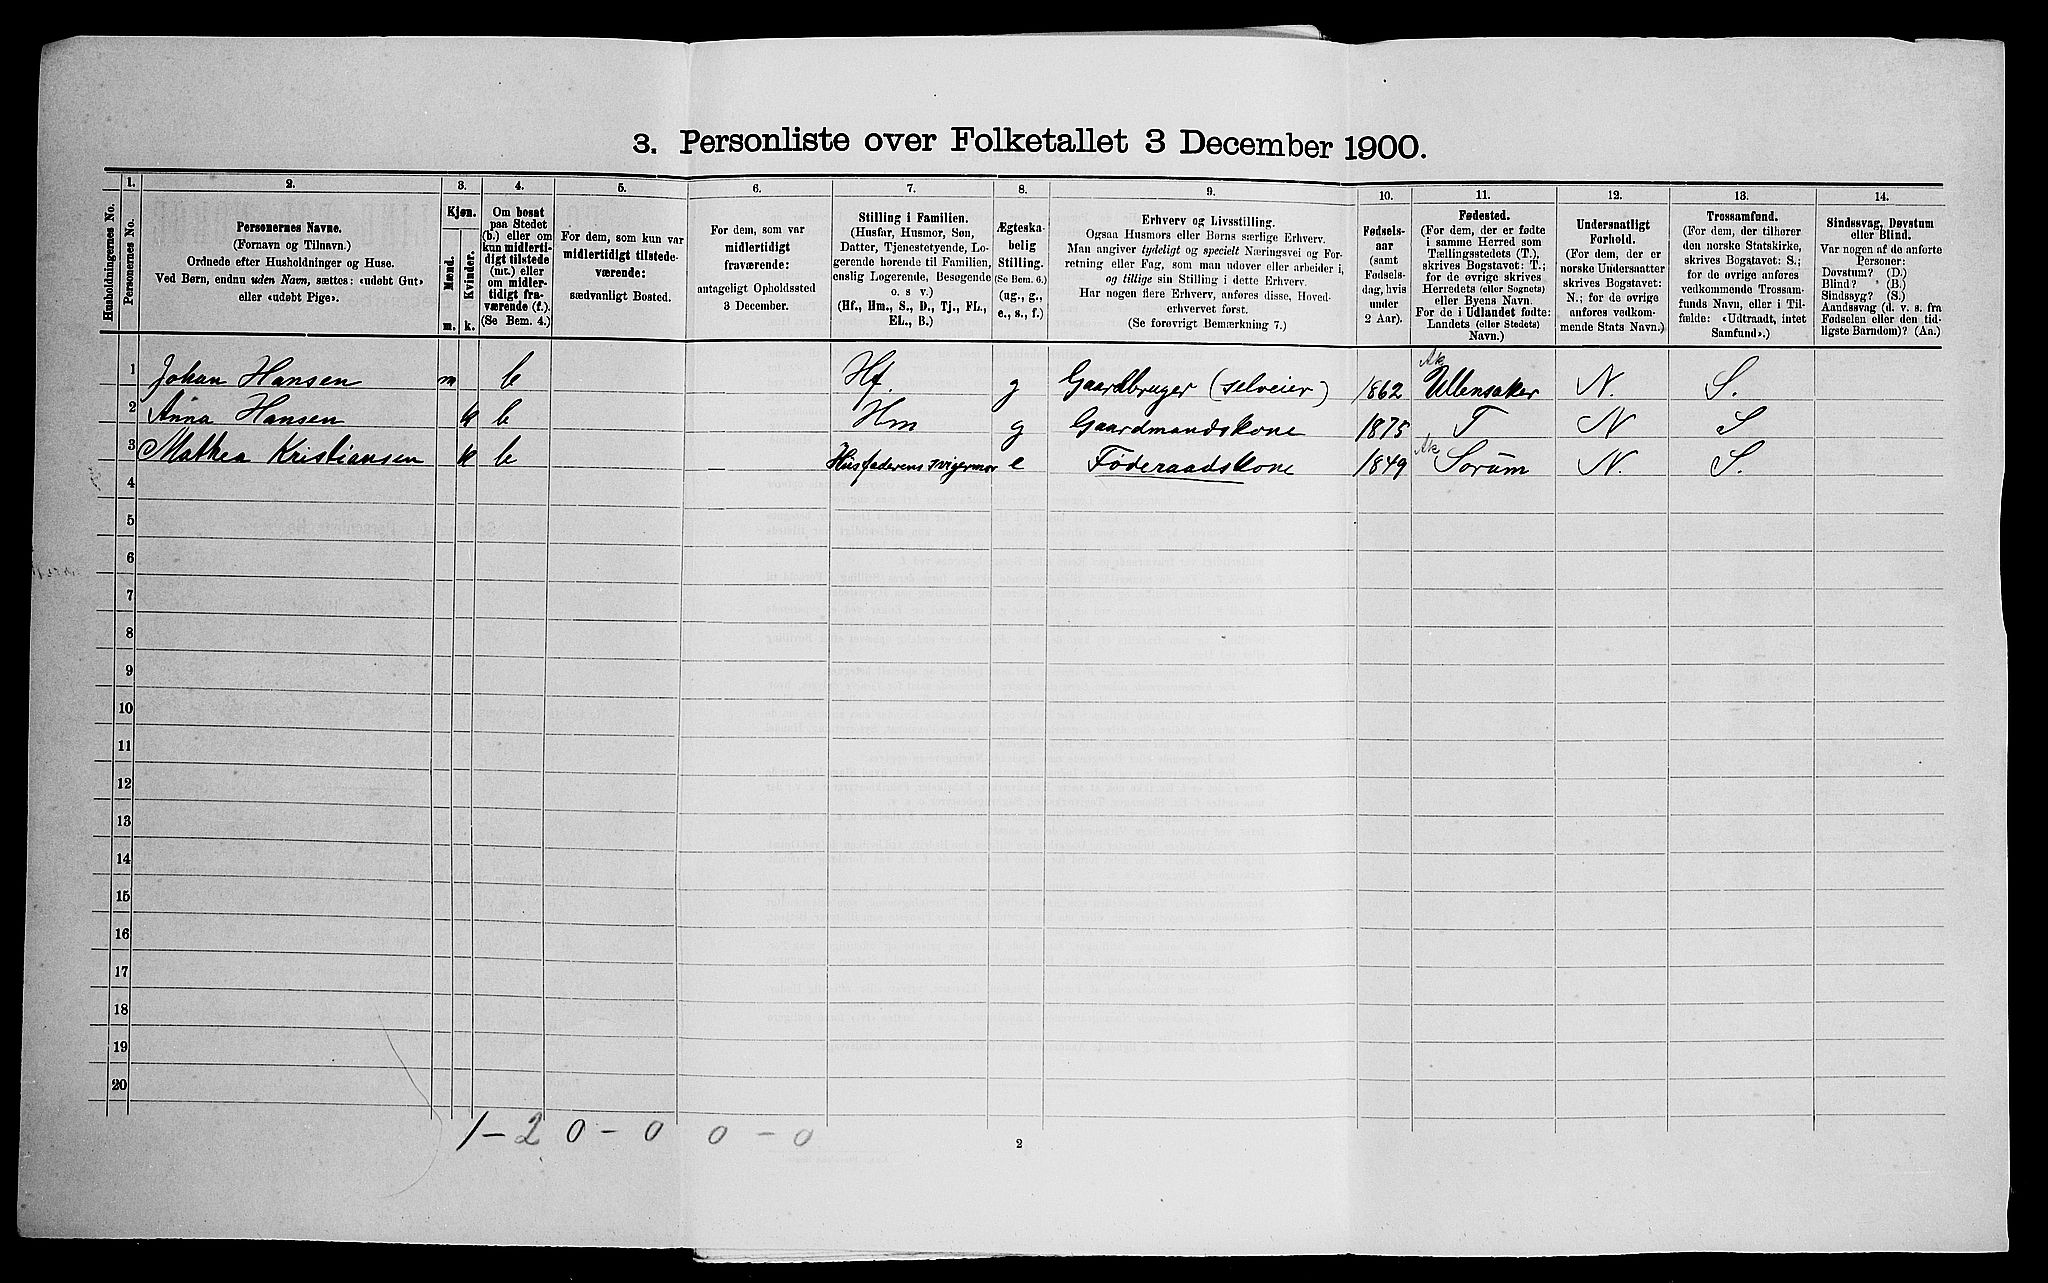 3. Personliste over Folketallet 3 December 1900.
1. 2. 3. 4. 5. 6. 7. 8. 9. 10. 11. 12. 13. 14.
Husholdningernes No.
Personernes No.
Personernes Navne.
(Fornavn og Tilnavn.)
Ordnede efter Husholdninger og Huse.
Ved Børn, endnu uden Navn, sættes: «udøbt Gut»
eller «udøbt Pige».
Kjøn.
Mænd.
Kvinder.
m. k.
Om bosat
paa Stedet
(b.) eller om
kun midlerti-
digt tilstede
(mt.) eller
om midler-
tidigt fra-
værende (f.).
(Se Bem. 4.)
For dem, som kun var
midlertidigt tilstede-
værende:
sædvanligt Bosted.
For dem, som var
midlertidigt
fraværende:
antageligt Opholdssted
3 December.
Stilling i Familien.
(Husfar, Husmor, Søn,
Datter, Tjenestetyende, Lo-
gerende hørende til Familien,
enslig Logerende, Besøgende
o. s v.)
(Hf., Hm., S., D., Tj., FL.,
EL., B.)
Ægteska-
belig
Stilling.
(Se Bem. 6.)
(ug., g.,
e., s., f.)
Erhverv og Livsstilling.
Ogsaa Husmors eller Børns særlige Erhverv.
Man angiver tydeligt og specielt Næringsvei og For-
retning eller Fag, som man udøver eller arbeider i,
og tillige sin Stilling i dette Erhverv.
Har nogen flere Erhverv, anføres disse, Hoved-
erhvervet først.
(Se forøvrigt Bemærkning 7.)
Fødsels-
aar
(samt
Fødsels-
dag, hvis
under
2 Aar).
Fødested.
(For dem, der er fødte
i samme Herred som
Tællingsstedets (T.),
skrives Bogstavet: T.;
for de øvrige skrives
Herredets (eller Sognets)
eller Byens Navn.
For de i Udlandet fødte:
Landets (eller Stedets)
Navn.)
Undersaatligt
Forhold.
(For dem, der er
norske Undersaatter
skrives Bogstavet:
N.; for de øvrige
anføres vedkom-
mende Stats Navn.)
Trossamfund.
(For dem, der tilhører
den norske Statskirke,
skrives Bogstavet: S.;
for de øvrige anføres
vedkommende Trossam-
funds Navn, eller i Til-
fælde: «Udtraadt, intet
Samfund».)
Sindssvag, Døvstum
eller Blind.
Var nogen af de anførte
Personer:
Døvstum? (D.)
Blind? (B.)
Sindssyg? (S.)
Aandssvag (d. v. s. fra
Fødselen eller den tid-
ligste Barndom)? (Aa.)
1 Johan Hansen m b Hf. g Gaardbruger (selveier) 1862 Ak Ullensaker N. S.
2 Anna Hansen k b Hm g Gaardmandskone 1875 T N S
3 Mathea Kristiansen k b — Husfaderens svigermor e Føderaadskone 1849 Ak Sørum N. S.
4
5
6
7
8
9
10
11
12
13
14
15
16
17
18
19
20
1 – 2 0 – 0 0 – 0
2